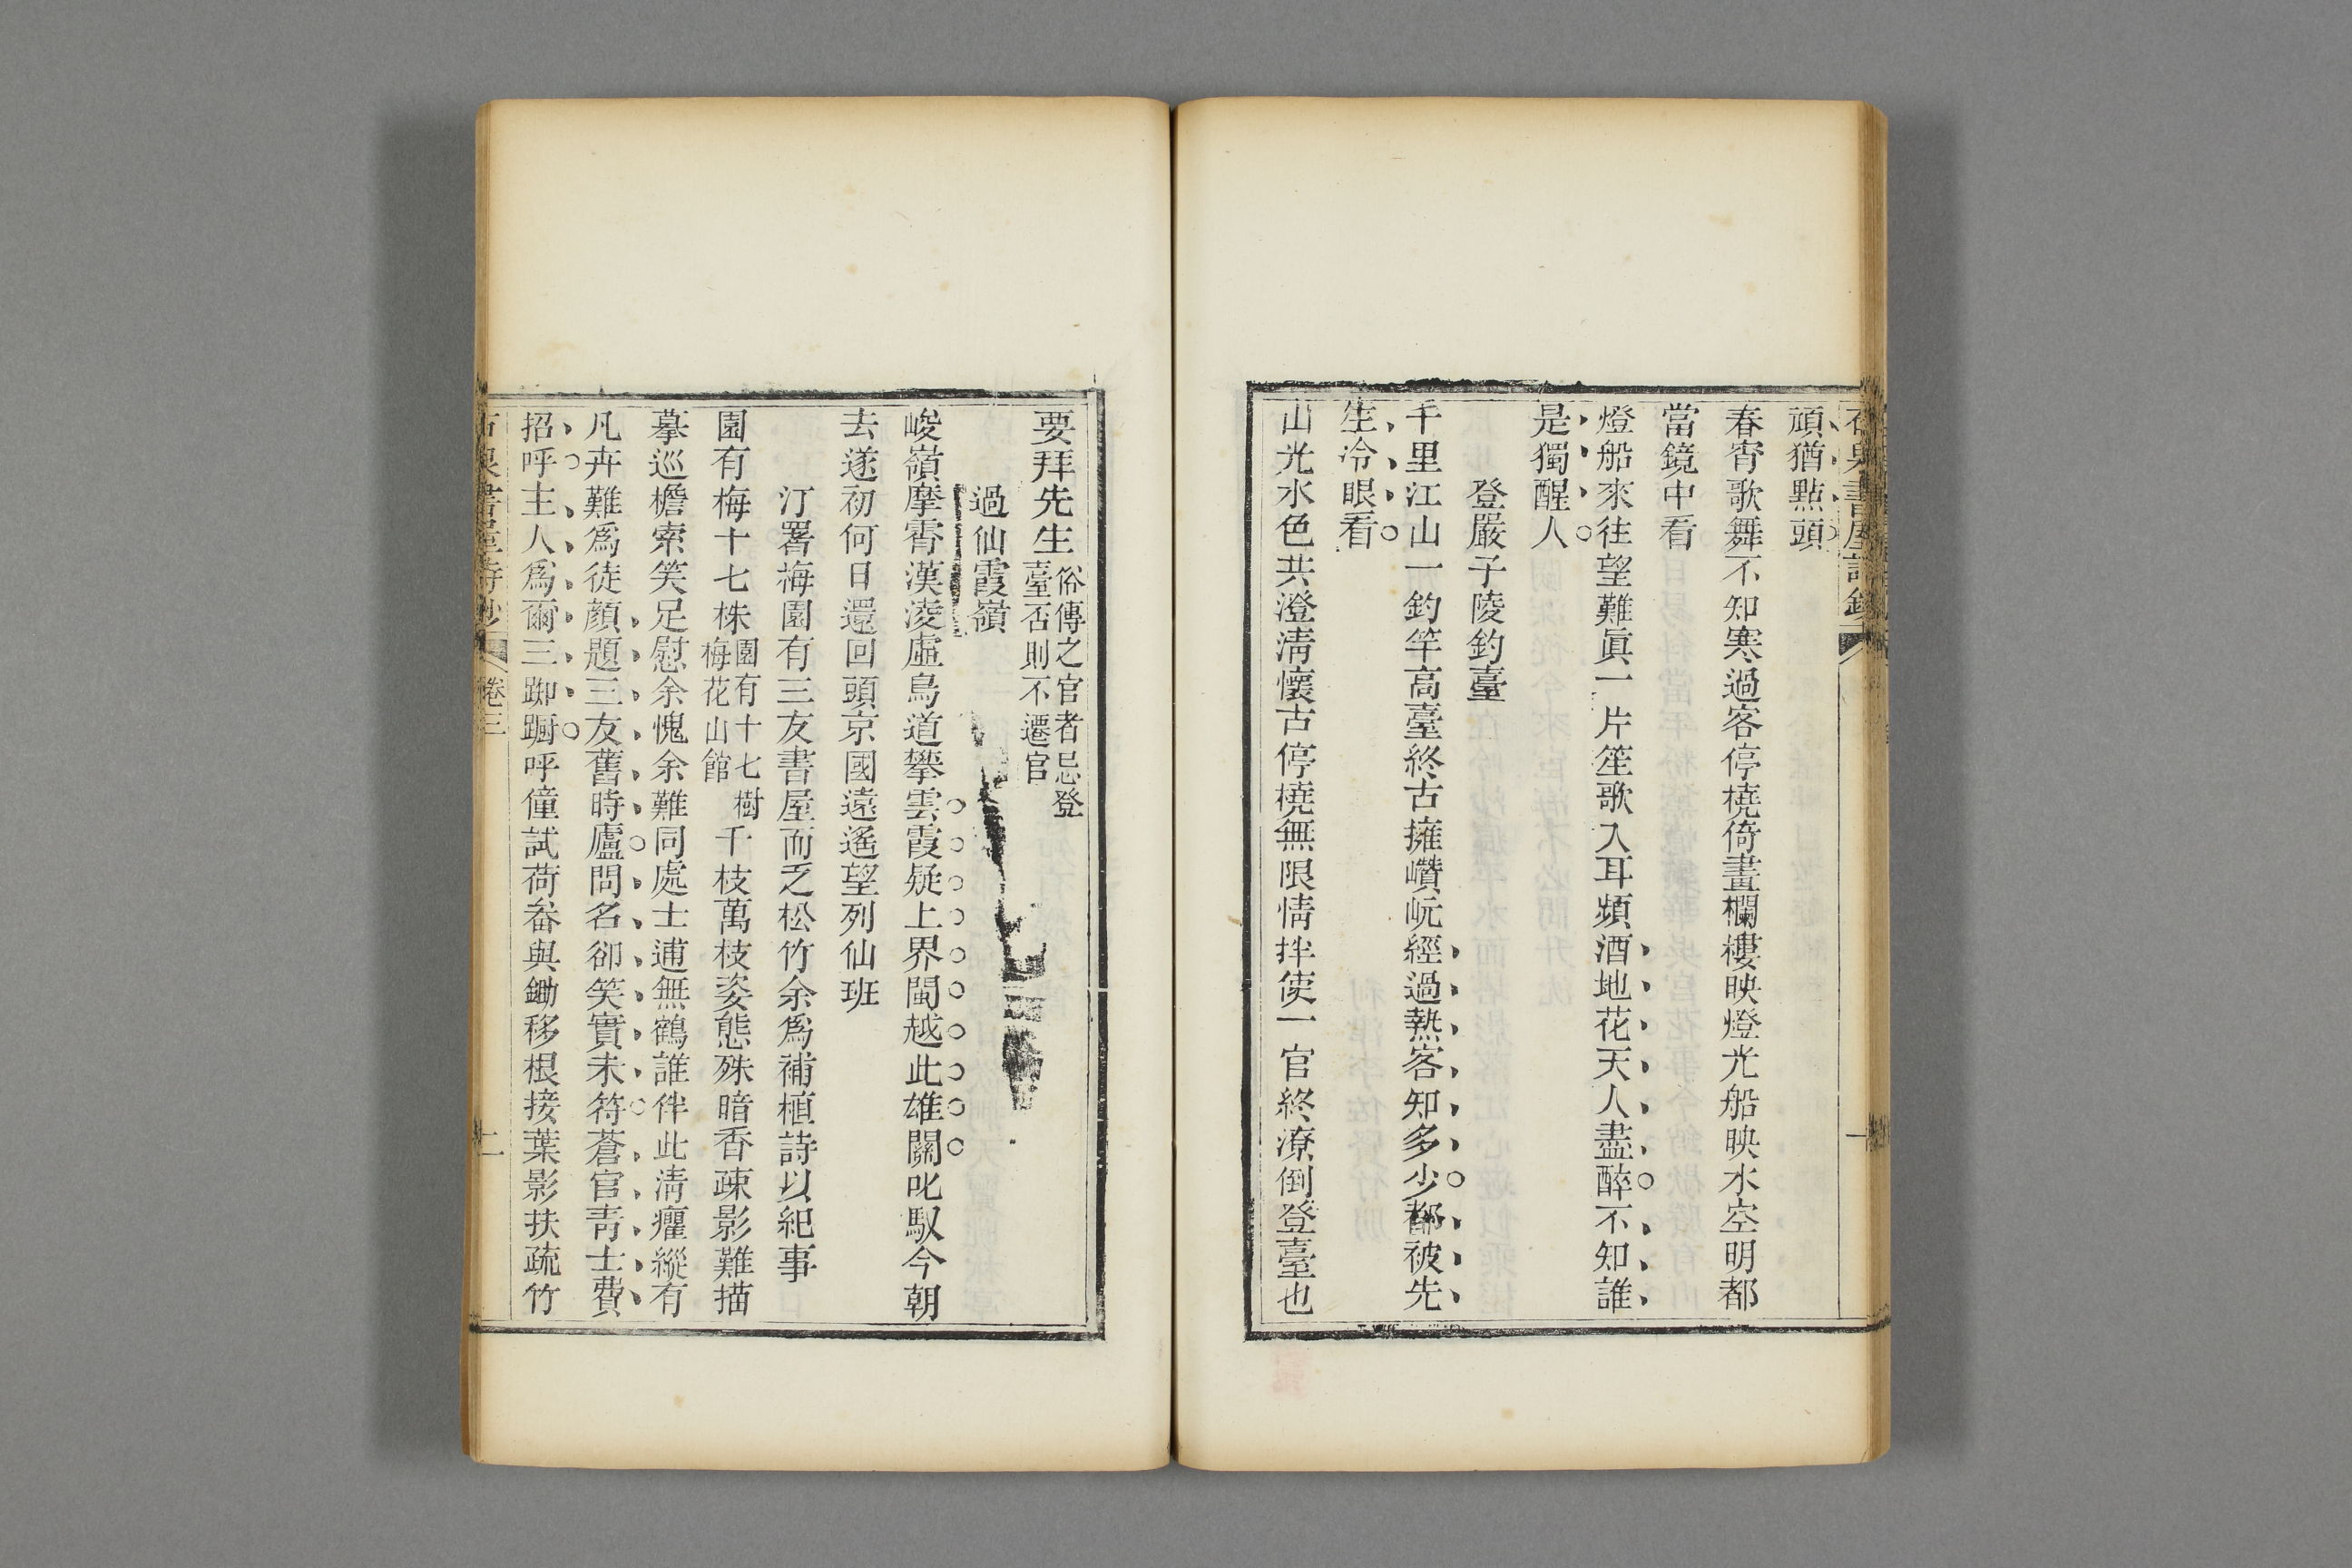 頑猶點頭
春宵歌舞不知寒過客停橈倚畫欄樓映燈光船映水空明都
當鏡中看
燈船來往望難眞一片笙歌入耳頻酒地花天人盡醉不知誰
是獨醒人
登嚴子陵釣臺
千里江山一釣竿高臺終古擁巑岏經過熱客知多少都被先
生冷眼看
山光水色共澄淸懷古停橈無限情拌使一官終潦倒登臺也
要拜先生俗傳之官者忌登
臺否則不遷官
過仙霞嶺
峻嶺摩霄漢淩虛鳥道攀雲霞疑上界閩越此雄關叱馭今朝
去遂初何日還回頭京國遠遙望列仙班
汀署梅園有三友書屋而乏松竹余爲補植詩以紀事
園有梅十七株園有十七樹
梅花山館千枝萬枝姿態殊暗香疎影難描
摹巡檐索笑足慰余愧余難同處士逋無鶴誰伴此淸癯縱有
凡卉難爲徒顏題三友舊時廬問名卻笑實未符蒼官靑士費
招呼主人爲爾三踟躕呼僮試荷畚與鋤移根接葉影扶疏竹
卷三
二